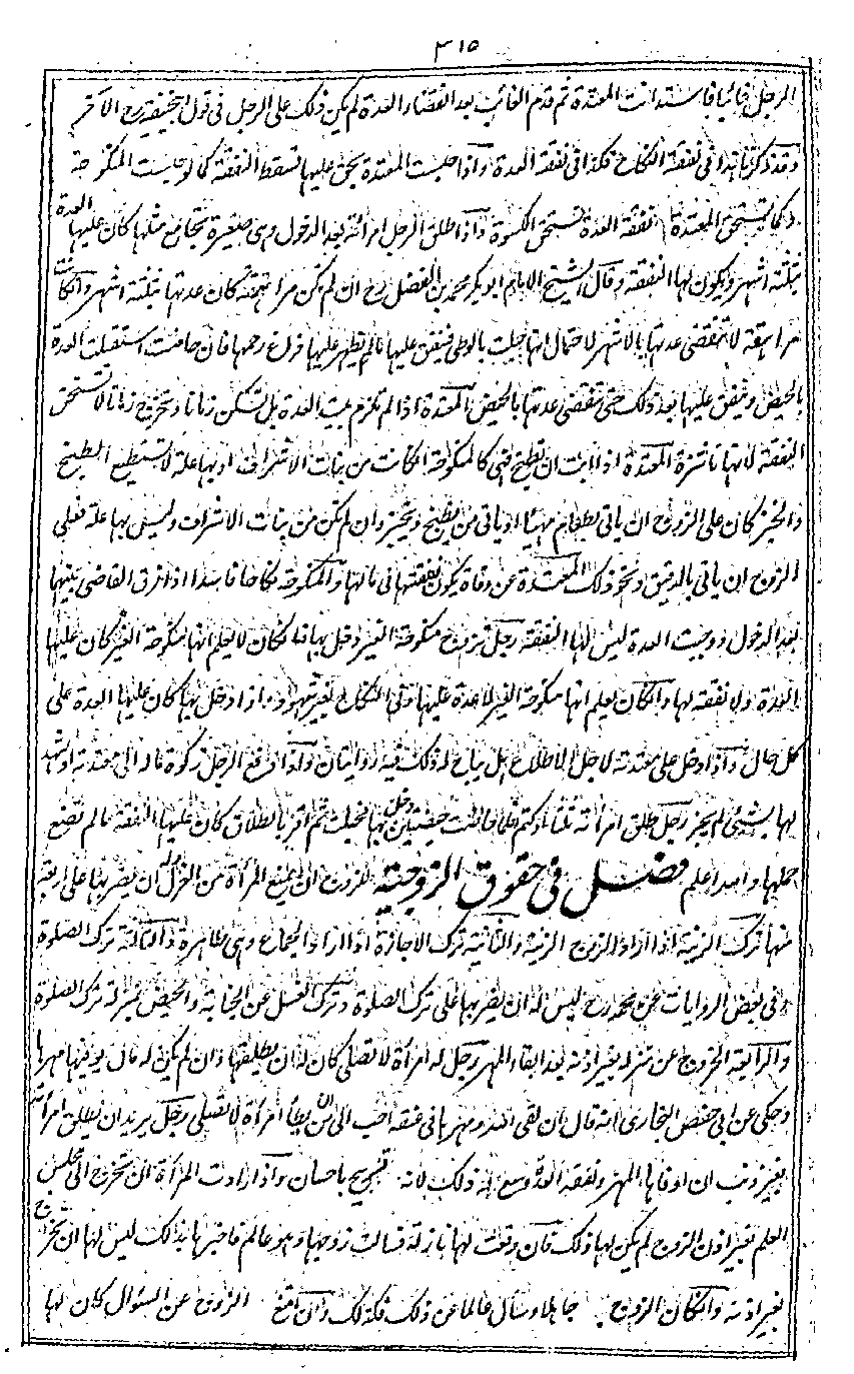 ٣١٥
الرجل غائبا فاستدانت المعتدة ثم قدم الغائب بعد انقضاء العدة لم يكن ذلك على الرجل فى قول ابيحنيفة رح الآخر
وقد ذكرنا هذا فى نفقة النكاح فكذا فى نفقة العدة واذا حبست المعتدة بحق عليها تسقط النفقة كما لو حبست المنكوحة
وكما تستحق المعتدة نفقة العدة تستحق الكسوة واذا طلق الرجل امرأته بعد الدخول وهى صغيرة تجامع مثلها كان عليها العدة
بثلثة اشهر ويكون لها النفقة وقال الشيخ الامام ابو بكر محمد بن الفضل رح ان لم تكن مراهقة كان عدتها بثلثة اشهر وانكانت
مراهقة لا تنقضى عدتها بالاشهر لاحتمال انها حبلت بالوطى فينفق عليها ما لم يظهر عليها فراغ رحمها فان حاضت استقبلت العدة
بالحيض وينفق عليها بعد ذلك حتى تنقضى عدتها بالحيض المعتدة اذا لم تلزم بيت العدة بل تسكن زمانا وتخرج زمانا لا تستحق
النفقة لانها ناشزة المعتدة اذا ابت ان تطبخ فهى كالمنكوحة انكانت من بنات الاشراف او بها علة لا تستطيع الطبخ
والخبز كان على الزوج ان ياتى بطعام مهيئا او ياتى من يطبخ ويخبز وان لم تكن من بنات الاشراف وليس بها علة فعلى
الزوج ان ياتى بالدقيق ونحو ذلك المعتدة عن وفاة يكون نفقتها فى مالها والمنكوحة نكاحا فاسدا اذا فرق القاضى بينهما
بعد الدخول ووجبت العدة ليس لها النفقة رجل تزوج منكوحة الغير ودخل بها فانكان لا يعلم انها منكوحة الغير كان عليها
العدة ولا نفقة لها وانكان يعلم انها منكوحة الغير لا عدة عليها وفى النكاح بغير شهود اذا دخل بها كان عليها العدة على
كل حال واذا دخل على معتدته لاجل الاطلاع هل يباح له ذلك فيه روايتان ولو دفع الرجل زكوة ماله الى معتدته او شهد
لها بشئ لم يجز رجل طلق امرأته ثلثا وكتم فلما حاضت حيضتين دخل بها فحبلت ثم اقر بالطلاق كان عليها النفقة ما لم تضع
حملها والله اعلم فصل فى حقوق الزوجية للزوج ان يمنع المرأة من الغزل وله ان يضربها على اربعة
منها ترك الزينة اذا اراد الزوج الزينة والثانية ترك الاجازة اذا اراد الجماع وهى طاهرة والثالثة ترك الصلوة
وفى بعض الروايات عن محمد رح ليس له ان يضربها على ترك الصلوة وترك الغسل عن الجنابة والحيض بمنزلة ترك الصلوة
والرابعة الخروج عن منزله بغير اذنه بعد ايفاء المهر رجل له امرأة لا تصلى كان له ان يطلقها وان لم يكن له مال يوفيها مهرها
وحكى عن ابى حفص البخارى انه قال ان لقى الله ومهرها فى عنقه احب الى من ان يطأ امرأة لا تصلى رجل يريد ان يطلق امرأته
بغير ذنب ان اوفاها المهر ونفقة العدة وسع له ذلك لانه تسريح باحسان واذا ارادت المرأة ان تخرج الى مجلس
العلم بغير اذن الزوج لم يكن لها ذلك فان وقعت لها نازلة فسالت زوجها وهو عالم فاخبرها بذلك ليس لها ان تخرج
بغير اذنه وانكان الزوج جاهلا وسأل عالما عن ذلك فكذلك وان امتنع الزوج عن السؤال كان لها